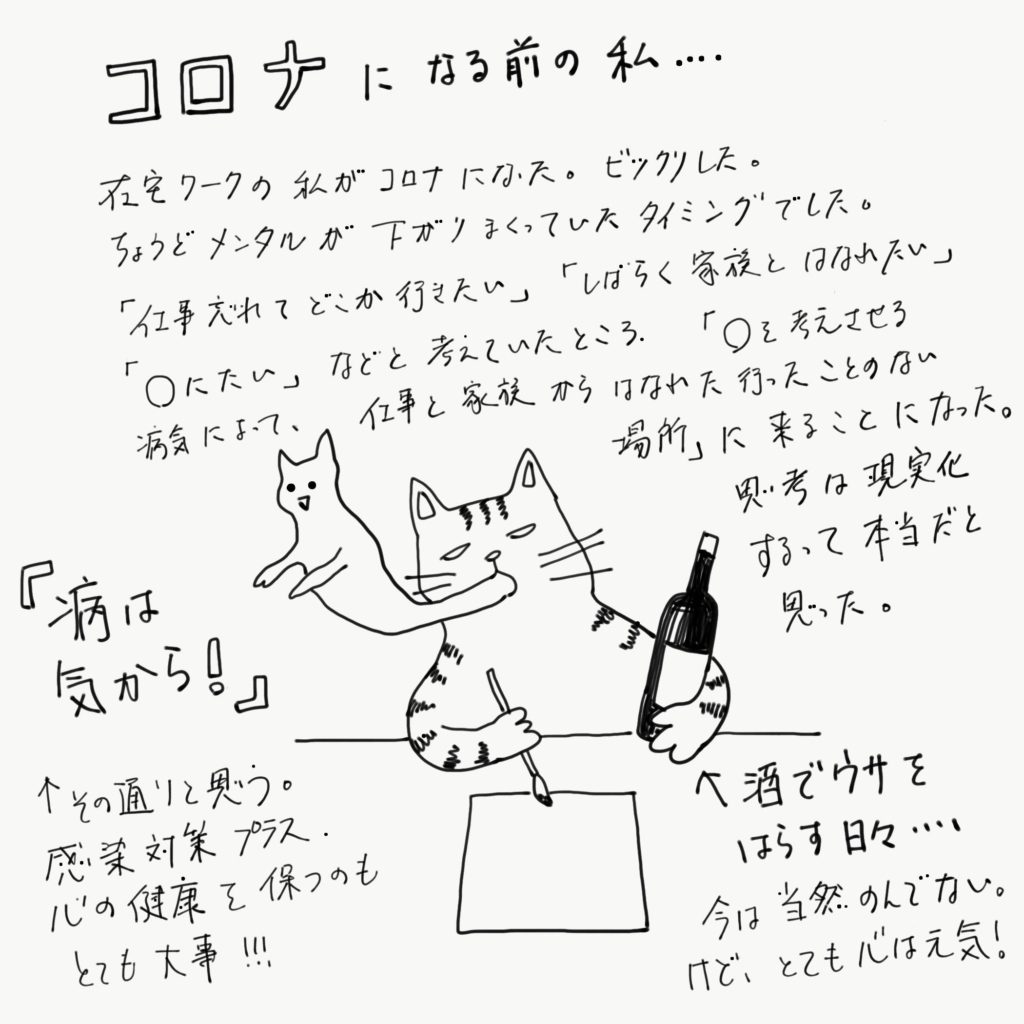 コロナになる前の私‥‥
在宅ワークの私がコロナになった。ビックリした。
ちょうどメンタルが下がりまくっていたタイミングでした。
「仕事忘れてどこか行きたい」「しばらく家族とはなれたい」
「〇にたい」などと考えていたところ、「〇を考えさせる
病気によって、仕事と家族からはなれた行ったことのない
場所」に来ることになった。
思考は現実化
するって本当だと
思った。
『病は
気から!』
↑その通りと思う。
感染対策プラス、
心の健康を保つのも
とても大事!!!
↖酒でウサを
はらす日々‥‥
今は当然のんでない。
けど、とても心は元気!